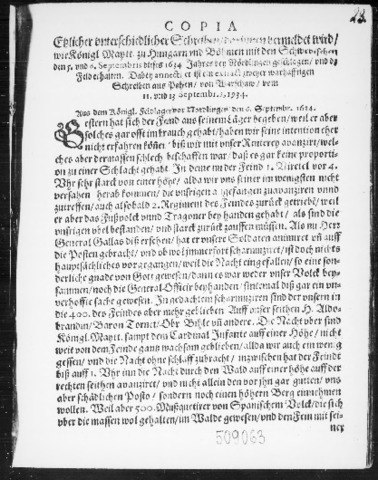 COPIA
Etlicher unterschiedlicher Schreiben darinnen vermeldet wird/
wie Königl. Maytt. zu Hungarn und Böhmen mit den Schwedischen
den 5. und 6. Septembris dises 1634 Jahres vor Nördlingen geschlagen/ und das
Feld erhalten. Dabey annectiert ist ein extract zweyer warhafftigen
Schreiben aus Pohen, von Warschaw, vom
11. und 13 Septembris, 1734.
Aus dem Königl. Feldlager vor Nördlingen den 6. Septembr. 1634.
Gestern hat sich der Feind aus seinem Läger begeben/ weil er aber
solches gar offt im brauch gehabt/ haben wir seine intention eher
nicht erfahren könen/ biß wir mit unser Reuterey avanzirt/ wel-
ches aber dermassen schlech beschaffen war/ daß es gar keine proporti-
on zu einer Schlacht gehabt. In deme nu der Feind 3. Viertel vor 4.
Uhr sehr starck von einer höhe/ alda wir uns seiner im wenigsten nicht
versahen herab kommen/ die unsrigen angefangen zu avanziren unnd
zutreffen/ auch alsobald 2. Regiment des Feindes zurück getriebē/ weil
er aber das Fußvolck unnd Tragoner bey handen gehabt/ als sind die
unsrigen übel bestanden/ und starck zurück lauffen müssen. Als nu Herr
General Gallas diß ersehen/ hat er unsere Soldaten animirt uñ auff
die Posten gebracht/ und ob wol jmmerfort scharmuzirt/ ist doch nichts
hauptsächliches vorgangen/ weil die Nacht eingefallen/ so eine son-
derliche gnade von Gott gewesen/ dann es war weder unser Volck bey-
sammen/ noch die General-Officirer beyhanden/ sintemal diß gar ein un-
verhoffte sache gewesen. In gedachtem scharmuziren sind der unsern in
die 400. des Feindes aber mehr geblieben. Auff unser seithen H. Aldo-
brandin/ Baron Tornet/ Obr. Bühle uñ andere. Die Nacht uber sind
Königl. Mayt. sampt dem Cardinal Infante auff einer Höhe/ nicht
weit von dem Feinde gantz wachsam geblieben/ allda wir auch ein wenig
gessen/ und die Nacht ohne schlaff zubracht/ inzwischen hat der Feindt
biß auff 1. Uhr inn die Nacht durch den Wald auff einer höhe auff der
rechten seithen avanziret/ und nicht allein den vor jhn gar guten/ uns
aber schädlichen Posto/ sondern noch einen höhern Berg einnehmen
wollen. Weil aber 500. Mußquetirer von Spanischem Volck/ die sich
uber die massen wol gehalten/ im Walde gewesen/ und den Feind mit sei-
ner
509063